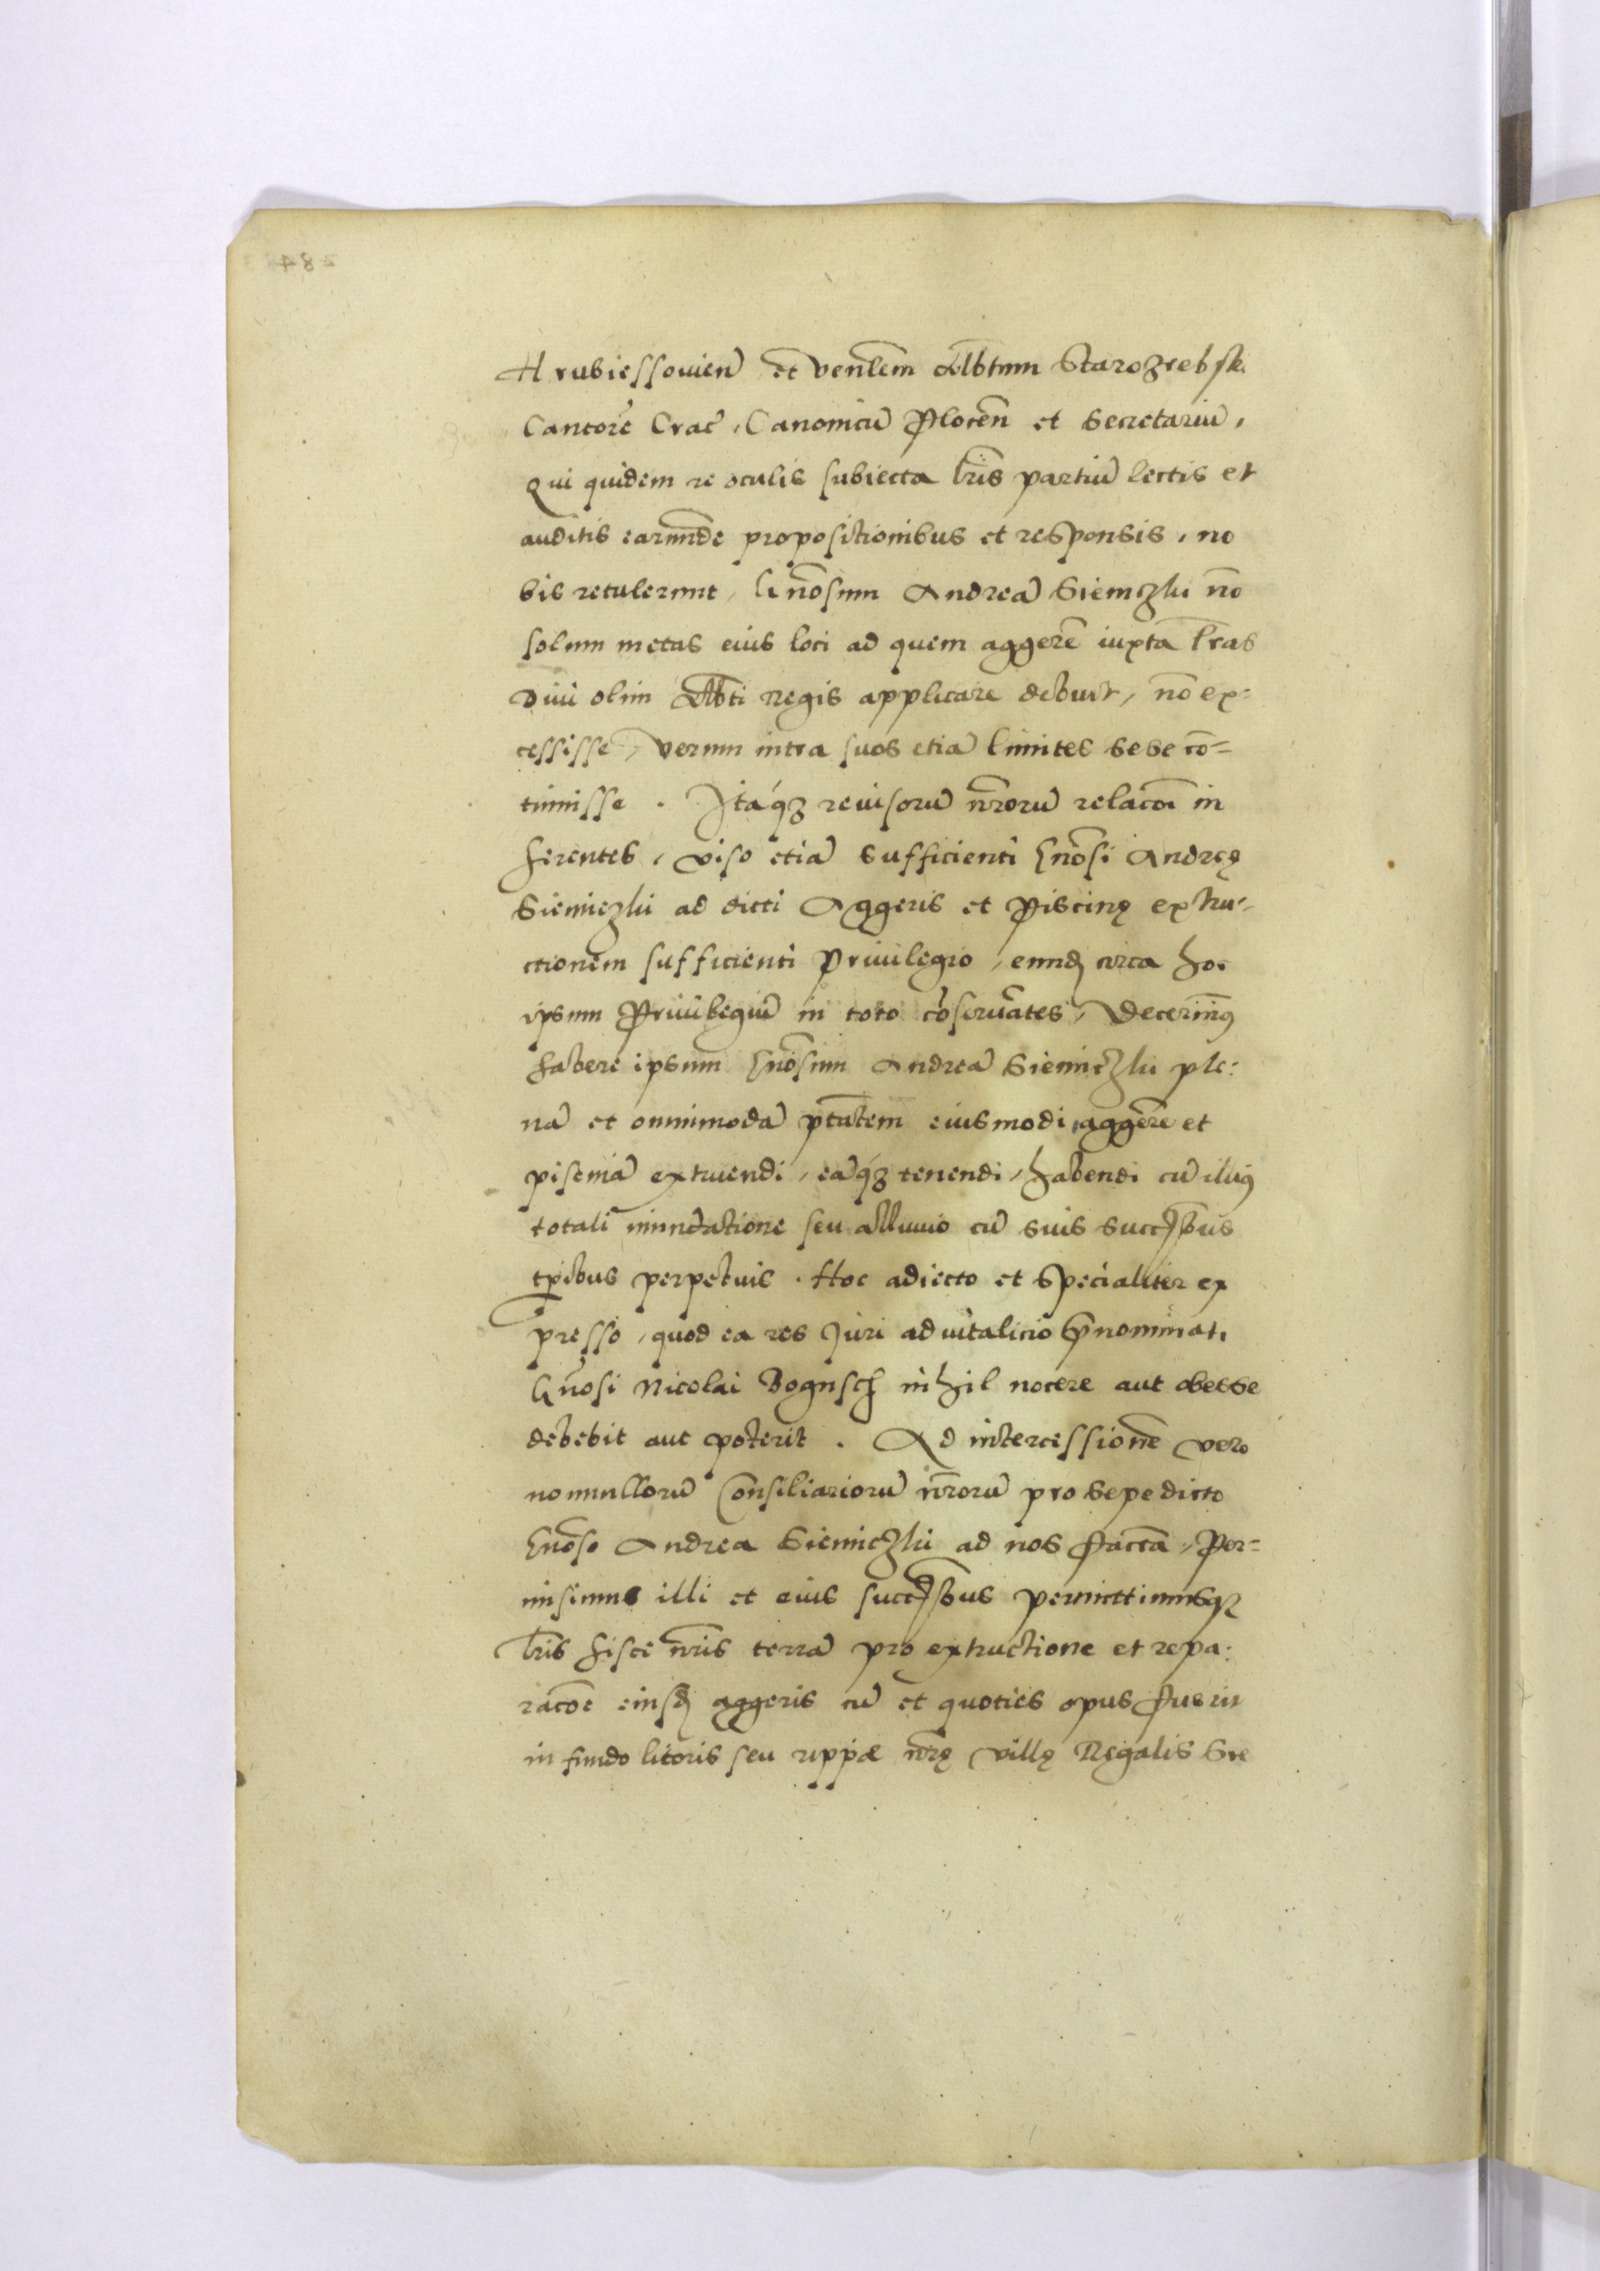 Hrubiessouien̄ et venlēm Albtum Starozrebsk.
Cantorē Crac̄, Canonicū Plocen̄ et Secretariū,
Qui quidem re oculis subiecta lris partiū lectis et
auditis earundē propositionibus et responsis, no
bis retulerunt, Gnōsum Andreā Siemiczki nō
solum metas eius loci ad quem aggerē iuxta lrās
Diui olim Albti Regis applicare debuit, nō ex-
cessisse, verum intra suos etiā limites sese cō-
tinuisse. Itaq́ȝ reuisorū nrōrū relacōi in
herentes, viso etiā sufficienti Gnōsi Andreę
Siemiczki ad dicti Aggeris et Piscinę extru-
ctionem sufficienti Priuilegio, eundē circa hoc
ipsum Priuilegiū in toto cōseruātes, Decerim̄us
habere ipsum Gnōsum Andreā Siemiczki ple-
nā et omnimodā ptātem eiusmodi aggerē et
piscinā extruendi, eāq́ȝ tenendi, habendi cū illius
totali inundatione seu alluuio cū suis succ̄sorībus
tp̄ibus perpetuis. Hoc adiecto et specialiter ex
presso, quod ea res Iuri aduitalicio p̄nominati
Gnōsi Nicolai Bogusch nihil nocere aut obesse
debebit aut poterit. Ad intercessionē vero
nonnullorū Consiliariorū nrōrū pro sepe dicto
Gnōso Andrea Siemiczki ad nos factā, Per-
misimus illi et eius succ̄sorībus permittimusqȝ
lris hisce nris terrā pro extructione et repa-
racōe eiusdē aggeris cū et quoties opus fuerit
in fundo litoris seu rippæ nrę villę Regalis Sre